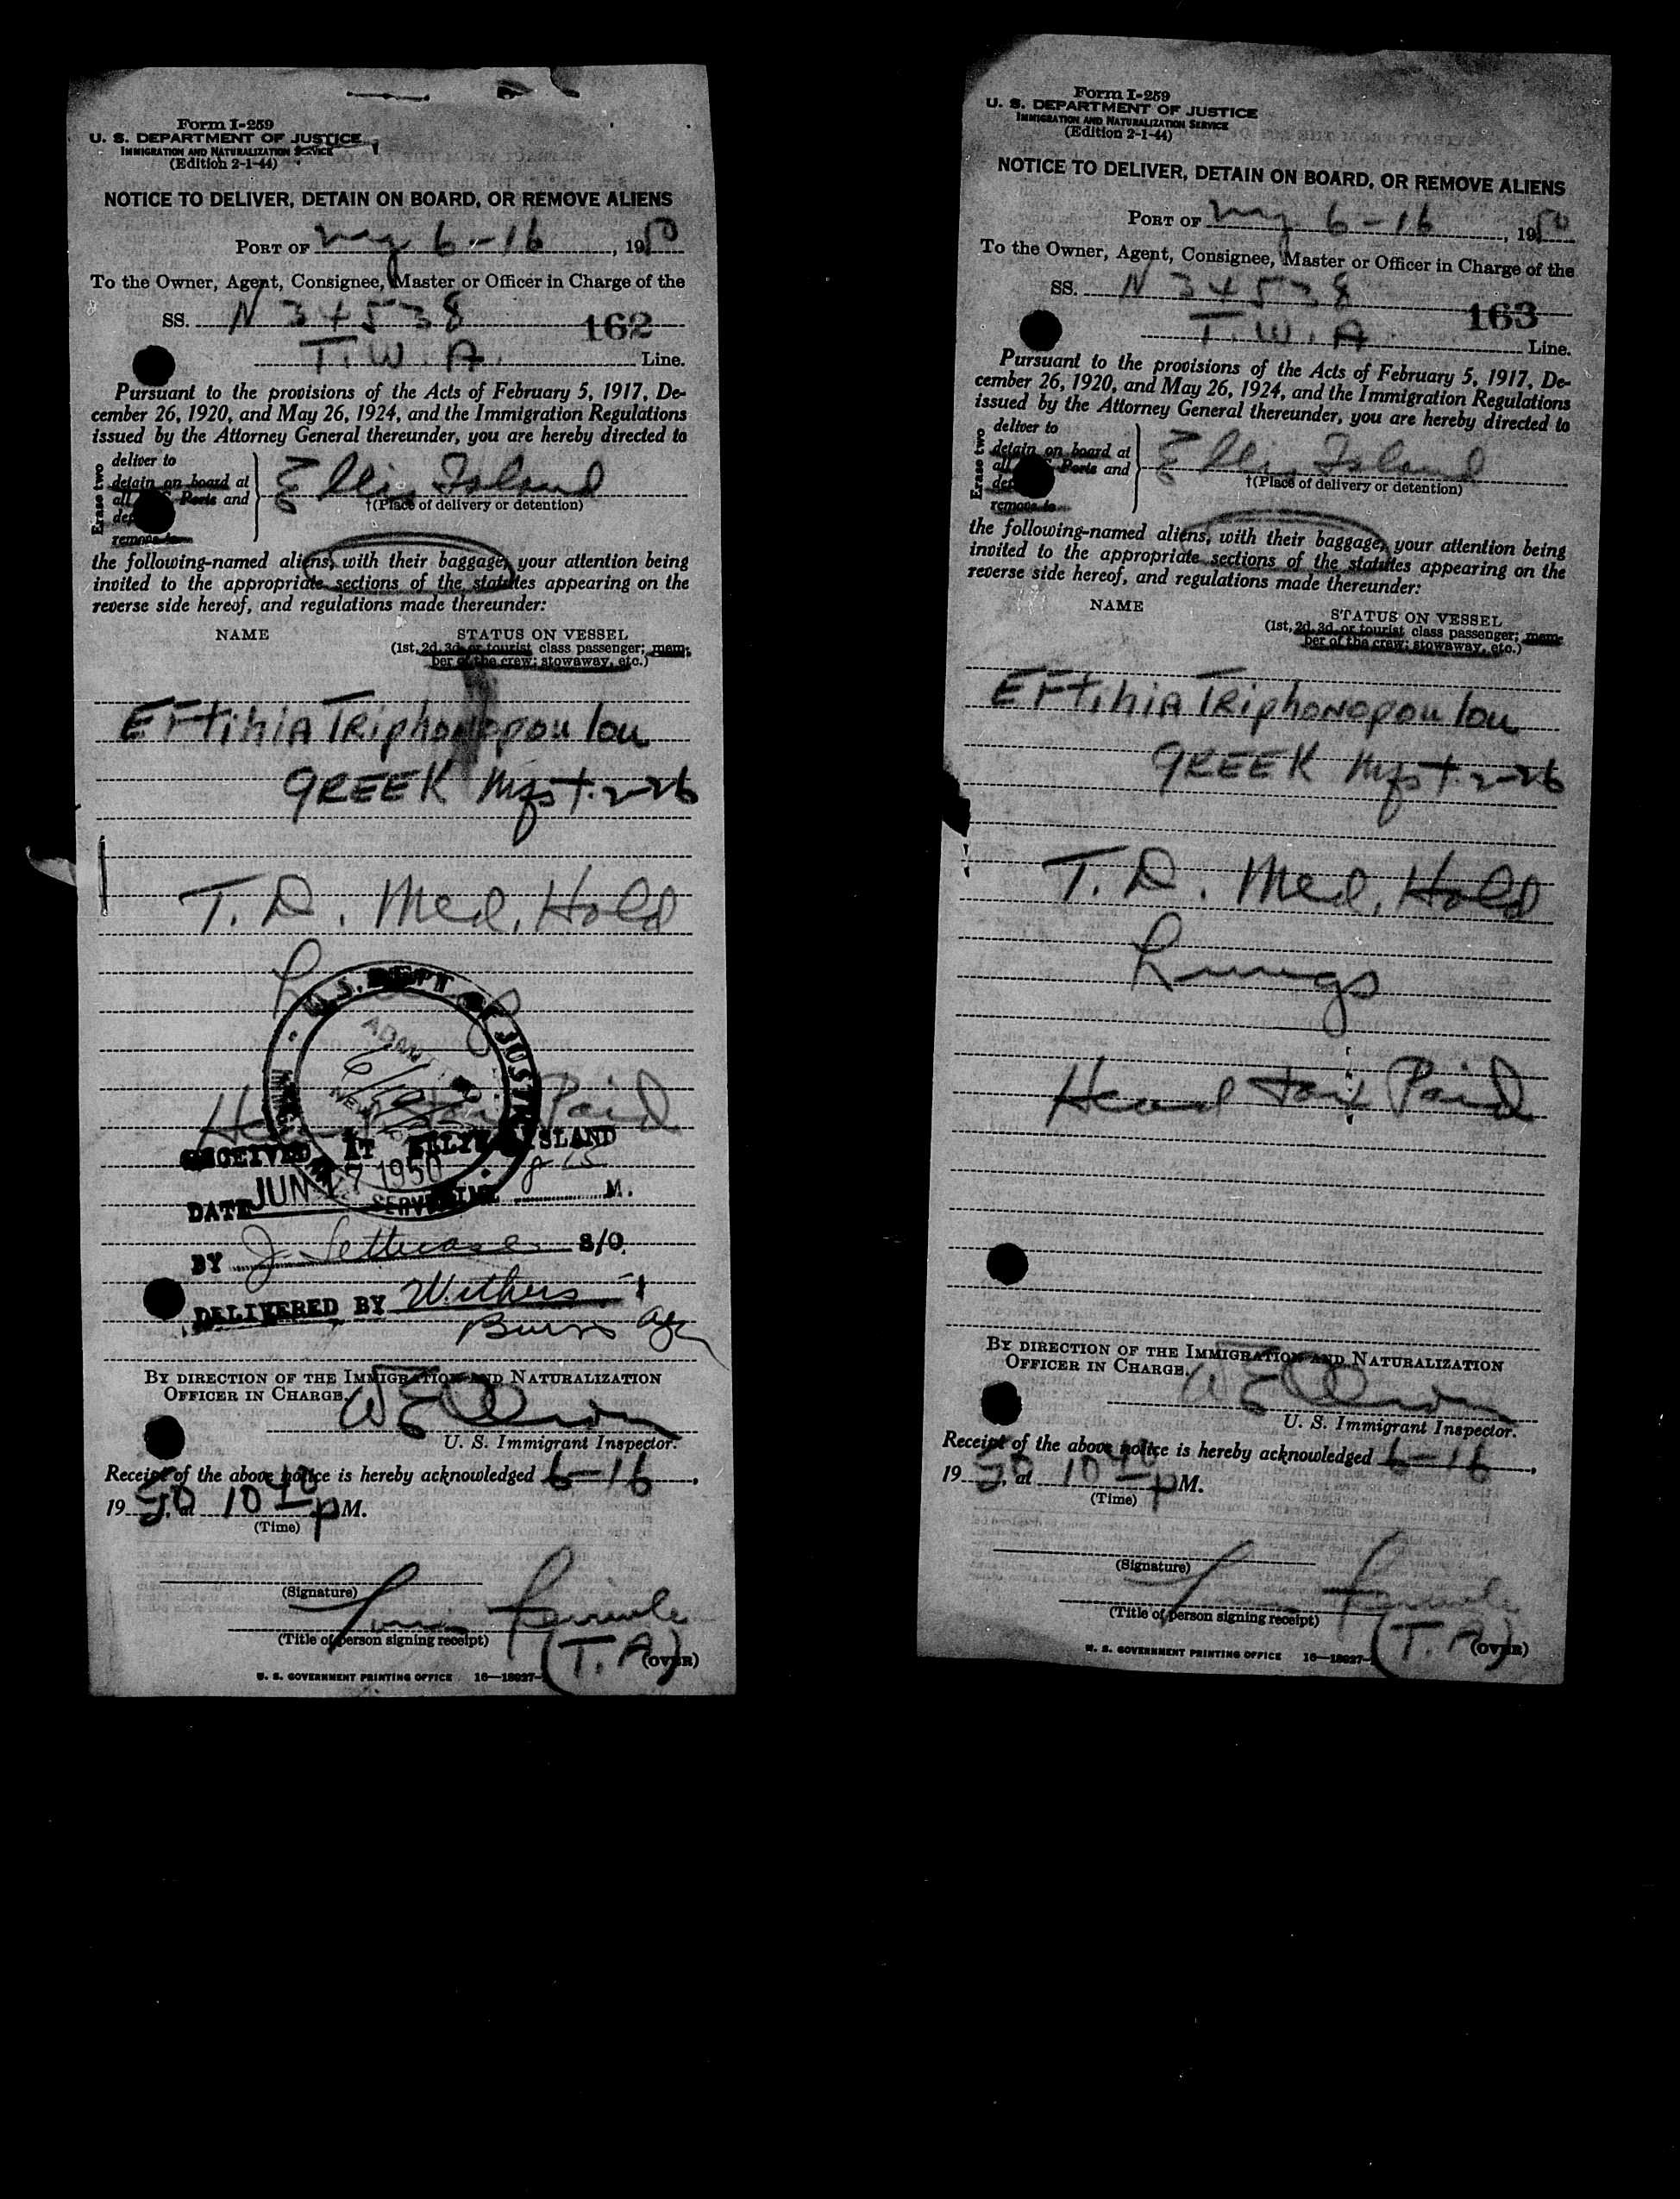 Form I-259
U. S. DEPARTMENT OF JUSTICE
IMMIGRATION AND NATURALIZATION SERVICE
(Edition 2-1-44)
NOTICE TO DELIVER, DETAIN ON BOARD, OR REMOVE ALIENS
PORT OF ny 6-16, 1950
To the Owner, Agent, Consignee, Master or Officer in Charge of the
SS. N 34538
162
T.W.A. Line.
Pursuant to the provisions of the Acts of February 5, 1917, De-
cember 26, 1920, and May 26, 1924, and the Immigration Regulations
issued by the Attorney General thereunder, you are hereby directed to
Erase two
deliver to
detain on board at
all Ports and
remove to
Ellis Island
†(Place of delivery or detention)
the following-named aliens, with their baggage, your attention being
invited to the appropriate sections of the statutes appearing on the
reverse side hereof, and regulations made thereunder:
NAME STATUS ON VESSEL
(1st, 2d, 3d, or tourist class passenger; mem-
ber of the crew; stowaway, etc.)
EFtihiA TRiphonopoulou
GREEK Mfst. 2-26
T. D. Med. Hold
Lungs
Head tax Paid
U.S. DEPT OF JUSTICE
ADMITTED
NEW
RECEIVED AT ELLIS ISLAND
DATE JUN 17 1950 M.
BY J. S/O.
DELIVERED BY Withers
Burns
BY DIRECTION OF THE IMMIGRATION AND NATURALIZATION
OFFICER IN CHARGE.
U. S. Immigrant Inspector.
Receipt of the above notice is hereby acknowledged 6-16,
1950, at 10 40 P M.
(Time)
(Signature)
(Title of person signing receipt)
(T.A)
(OVER)
U. S. GOVERNMENT PRINTING OFFICE 16—18027-
Form I-259
U. S. DEPARTMENT OF JUSTICE
IMMIGRATION AND NATURALIZATION SERVICE
(Edition 2-1-44)
NOTICE TO DELIVER, DETAIN ON BOARD, OR REMOVE ALIENS
PORT OF ny 6-16, 1950
To the Owner, Agent, Consignee, Master or Officer in Charge of the
SS. N 34538
163
T.W.A. Line.
Pursuant to the provisions of the Acts of February 5, 1917, De-
cember 26, 1920, and May 26, 1924, and the Immigration Regulations
issued by the Attorney General thereunder, you are hereby directed to
Erase two
deliver to
detain on board at
all Ports and
remove to
Ellis Island
†(Place of delivery or detention)
the following-named aliens, with their baggage, your attention being
invited to the appropriate sections of the statutes appearing on the
reverse side hereof, and regulations made thereunder:
NAME STATUS ON VESSEL
(1st, 2d, 3d, or tourist class passenger; mem-
ber of the crew; stowaway, etc.)
EFtihiA TRiphonopoulou
GREEK Mfst. 2-26
T. D. Med. Hold
Lungs
Head tax Paid
BY DIRECTION OF THE IMMIGRATION AND NATURALIZATION
OFFICER IN CHARGE.
U. S. Immigrant Inspector.
Receipt of the above notice is hereby acknowledged 6-16,
1950, at 10 40 P M.
(Time)
(Signature)
(Title of person signing receipt)
(T.A)
(OVER)
U. S. GOVERNMENT PRINTING OFFICE 16—18027-